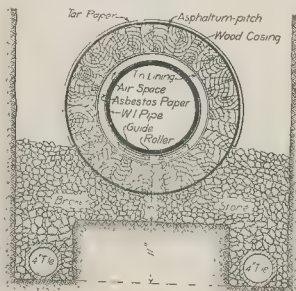 Tar Paper
Asphaltum-pitch
Wood Casing
Tin Lining
Air Space
Asbestos Paper
W.I. Pipe
Guide
Roller
Stone
4" Tile
4" Tile